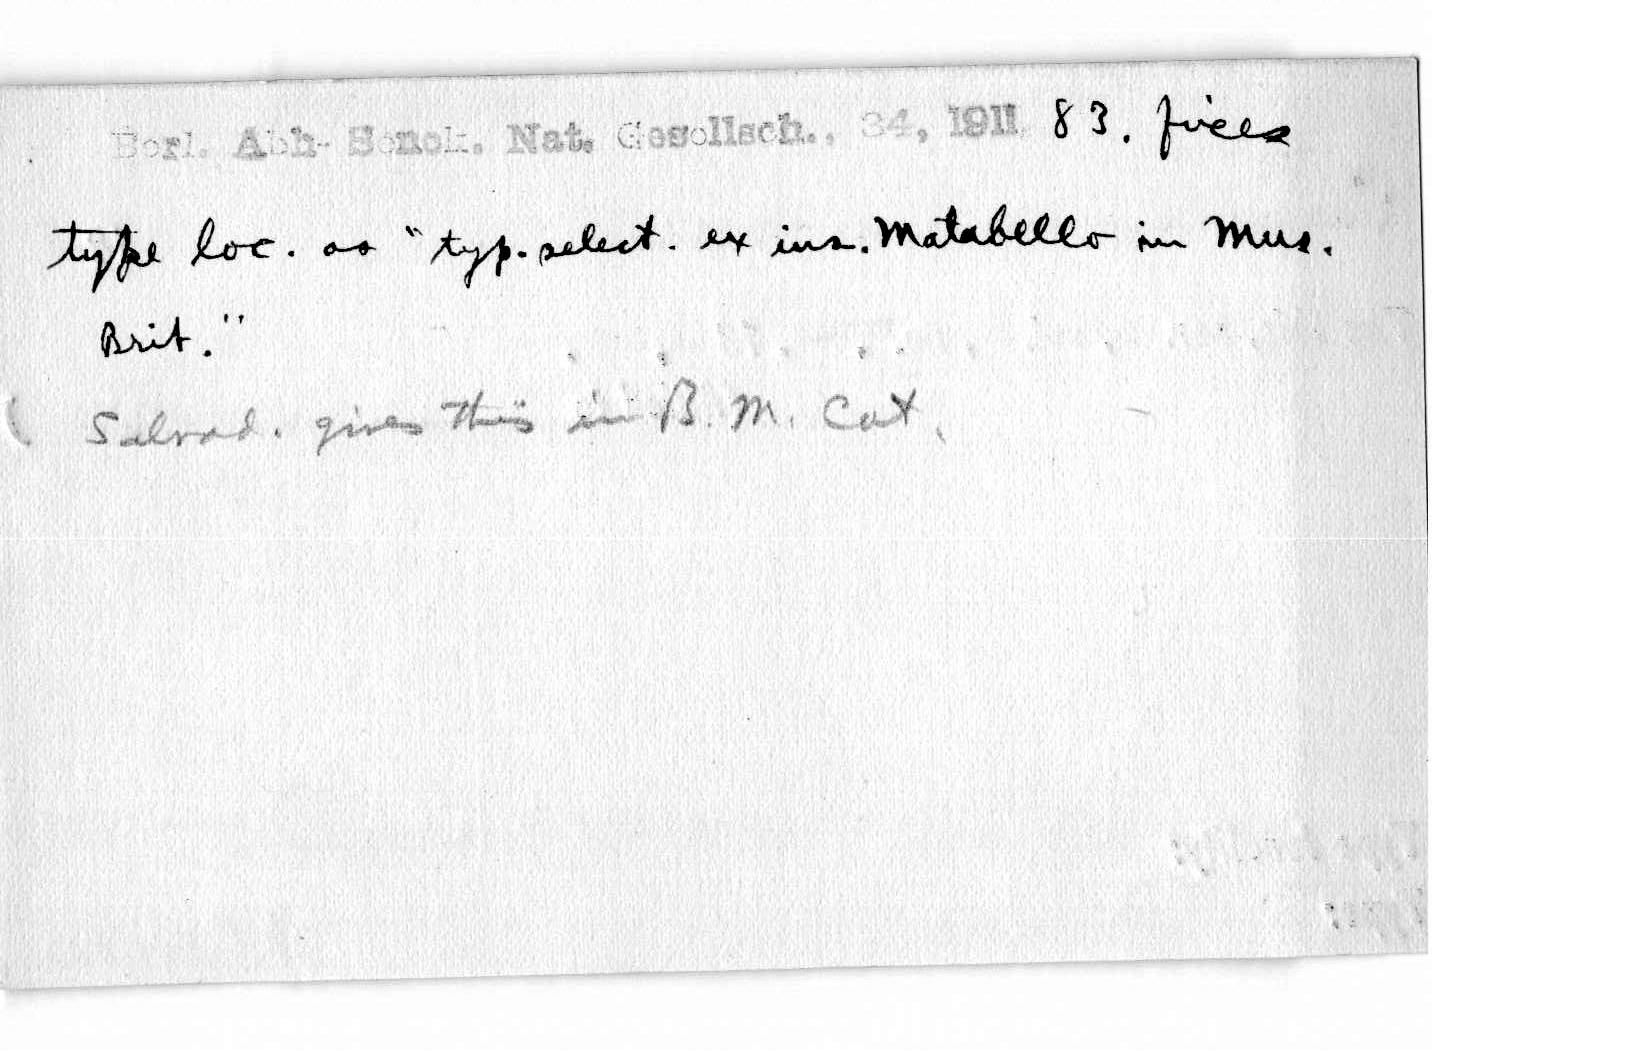 Berl. Abh. Senck. Nat. Gesellsch., 34, 1911, 83. fixes
type loc. as "typ. select. ex ins. Matabello in Mus.
Brit."
( Salvad. gives this in B. M. Cat.